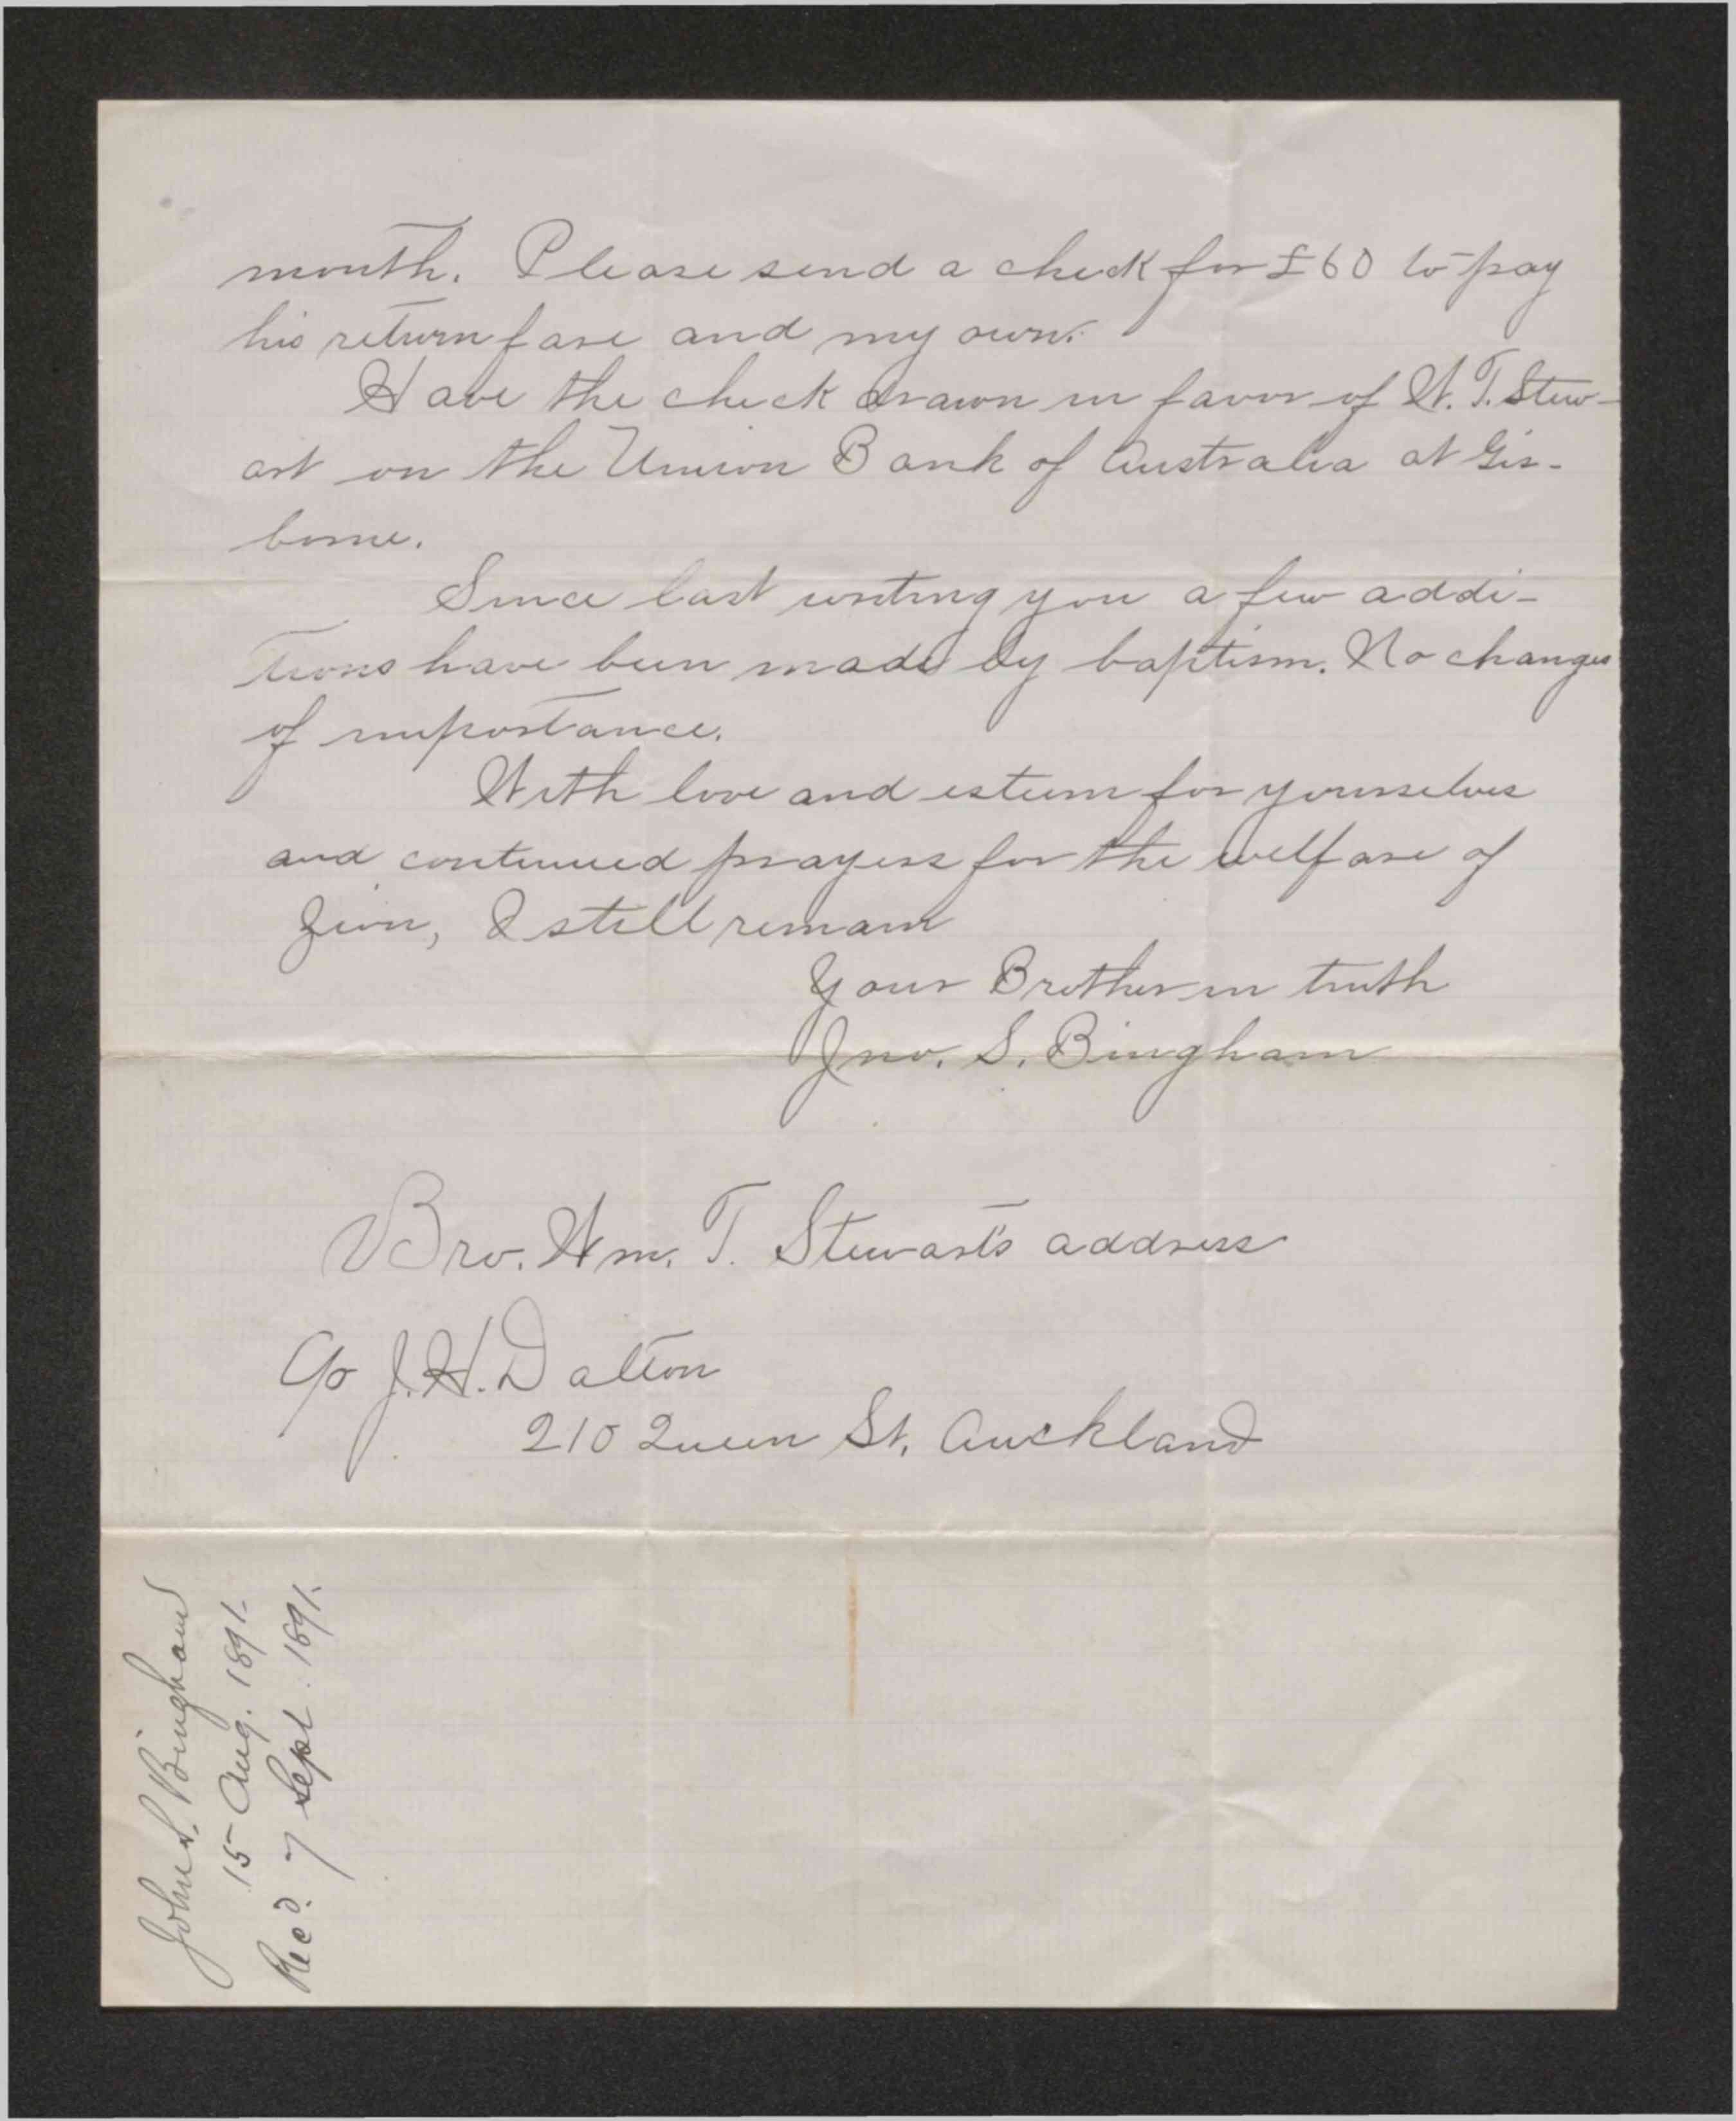 month. Please send a check for £60 to pay
his return fare and my own.
Have the check drawn in favor of W. T. Stew-
art on the Union Bank of Australia at Gis-
borne.
Since last writing you a few addi-
tions have been made by baptism. No changes
of importance.
With love and esteem for yourselves
and continued prayers for the welfare of
Zion, I still remain
Your Brother in truth
Jno. S. Bingham
Bro. Wm. T. Stewart's address
c/o J. H. Dalton
210 Queen St. Auckland
John S. Bingham
15 Aug. 1891.
Rec'd. 7 Sept. 1891.